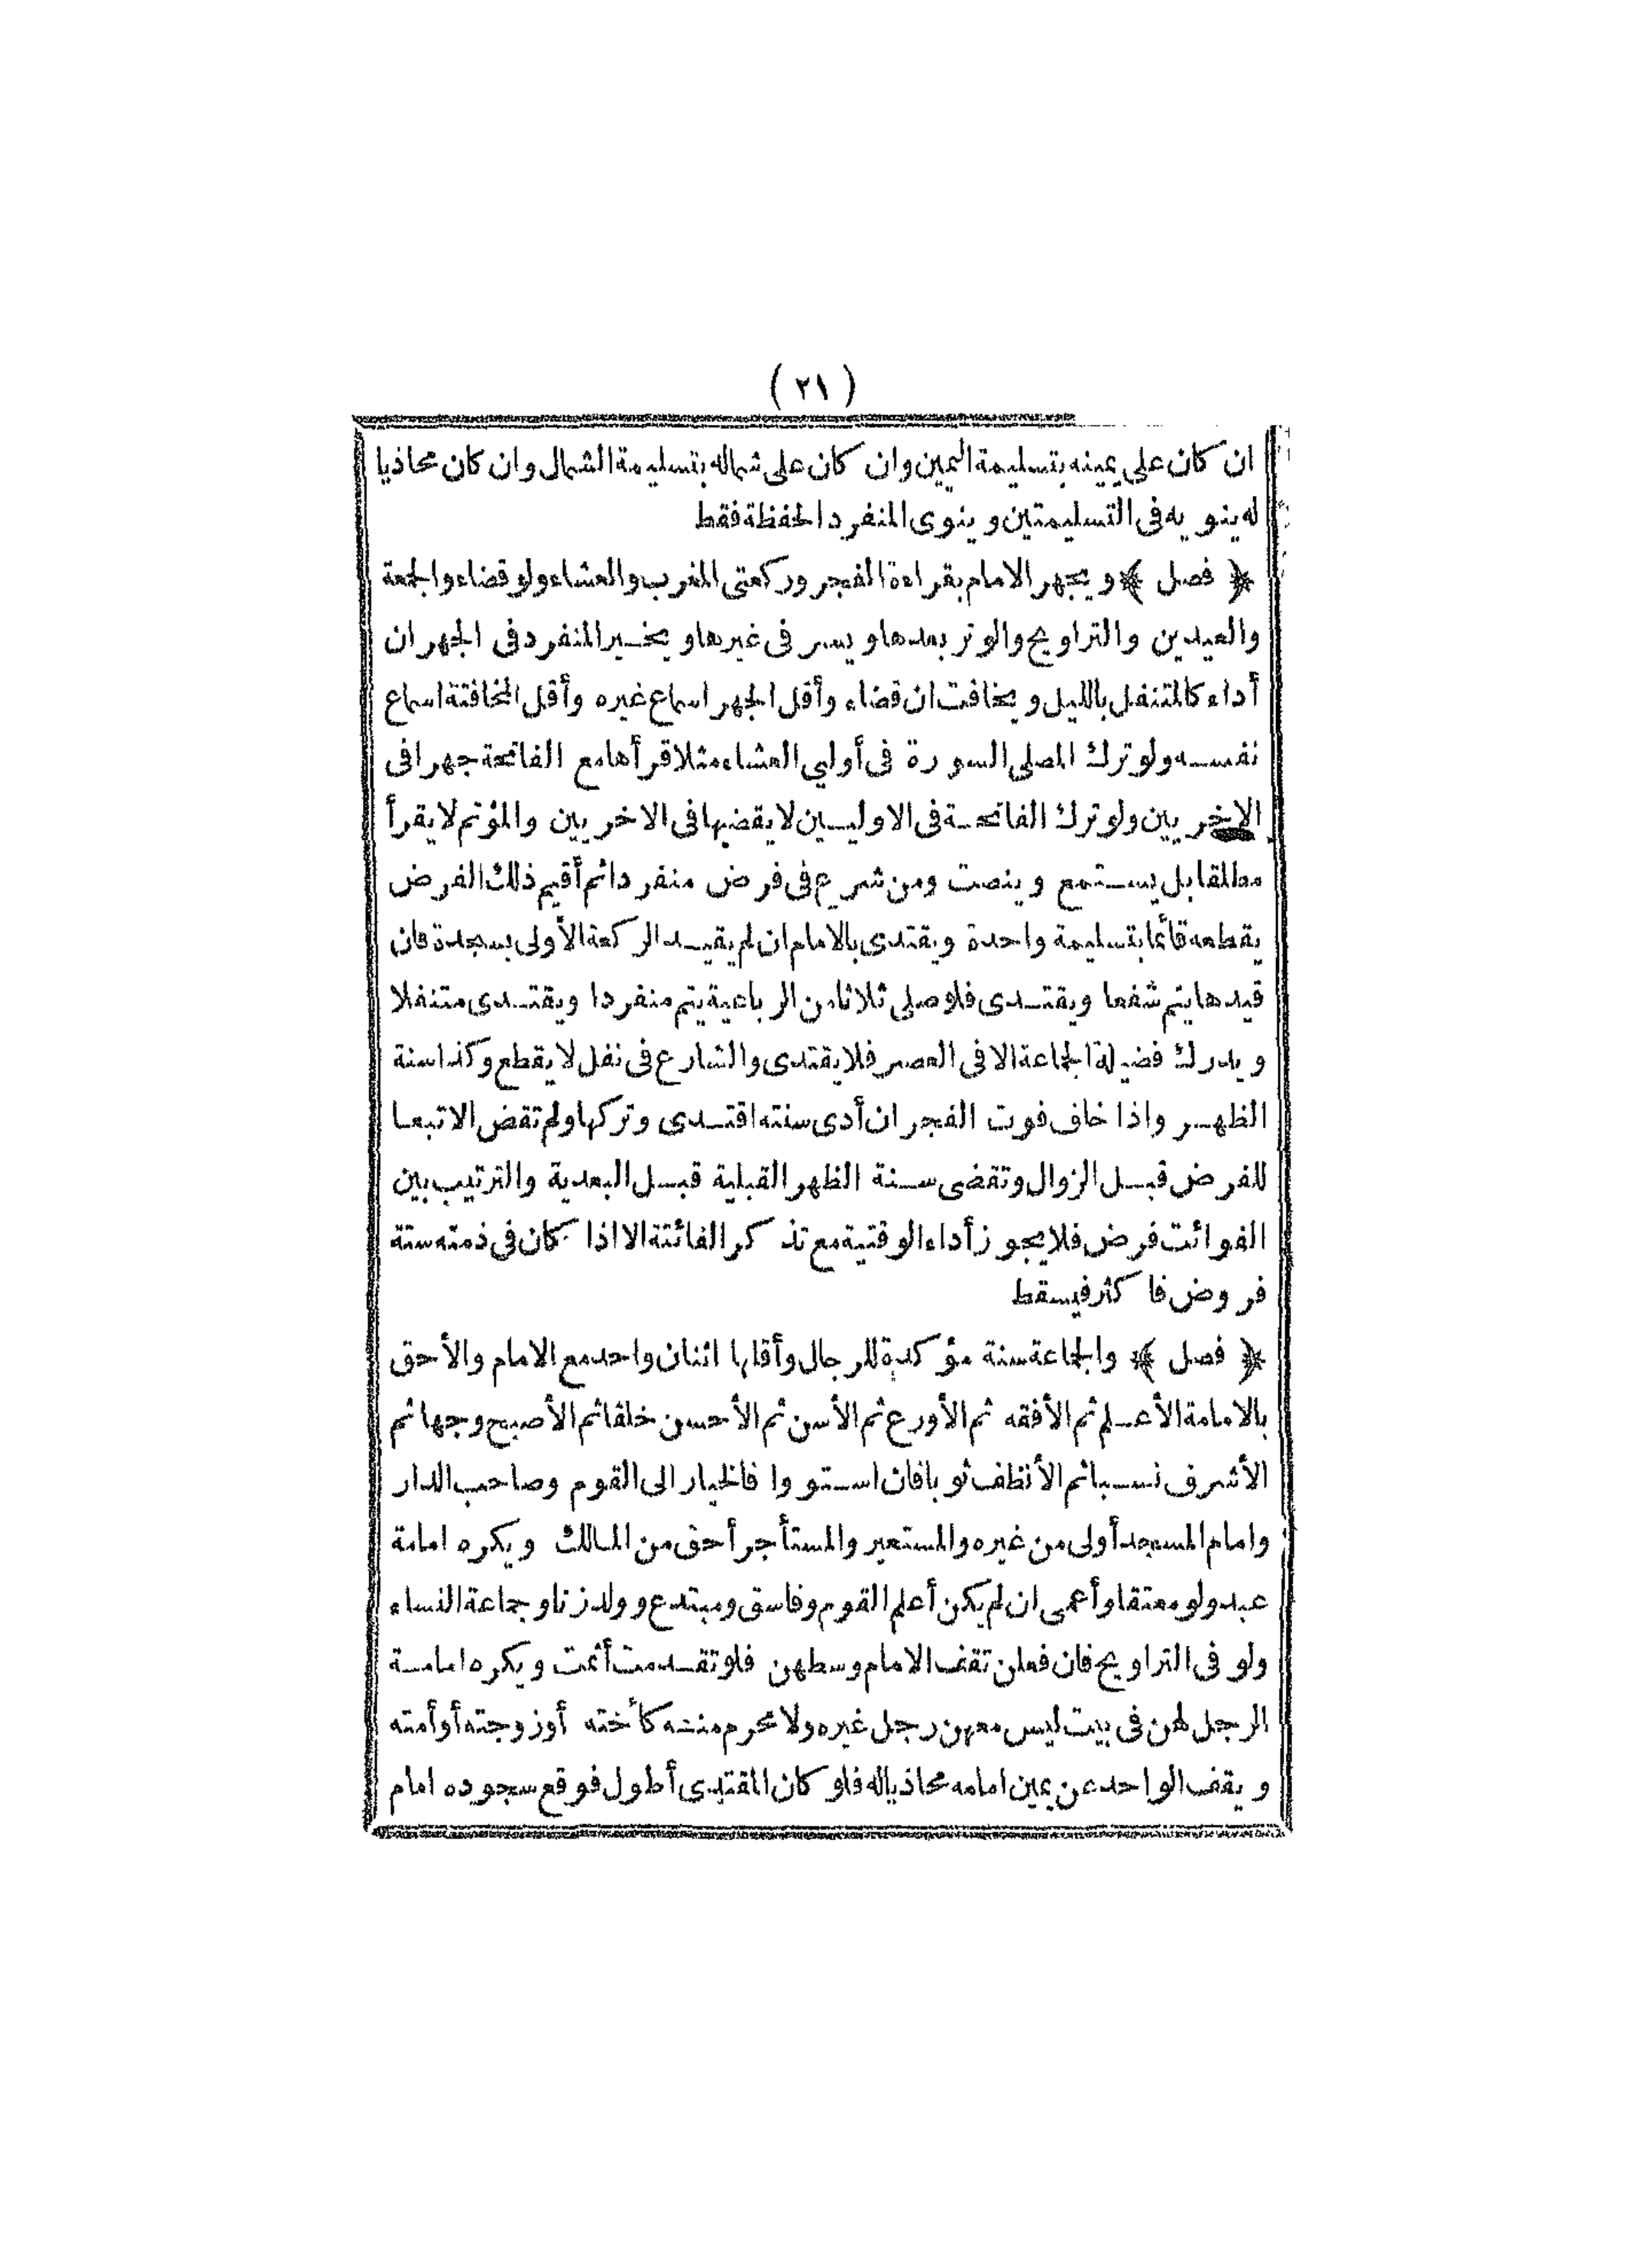 ( ٢١ )
ان كان على يمينه بتسليمة اليمين وان كان على شماله بتسليمة الشمال وان كان محاذيا
له ينويه فى التسليمتين وينوى المنفرد الحفظة فقط
﴿ فصل ﴾ ويجهر الامام بقراءة الفجر وركعتى المغرب والعشاء ولو قضاء والجمعة
والعيدين والتراويح والوتر بعدها ويسر فى غيرها ويخير المنفرد فى الجهر ان
أداء كالمتنفل بالليل ويخافت ان قضاء وأقل الجهر اسماع غيره وأقل المخافتة اسماع
نفسه ولو ترك المصلى السورة فى أوليي العشاء مثلا قرأها مع الفاتحة جهرا فى
الاخريين ولو ترك الفاتحة فى الاوليين لا يقضيها فى الاخريين والمؤتم لا يقرأ
مطلقا بل يستمع وينصت ومن شرع فى فرض منفردا ثم أقيم ذلك الفرض
يقطعه قائما بتسليمة واحدة ويقتدى بالامام ان لم يقيد الركعة الأولى بسجدة فان
قيدها يتم شفعا ويقتدى فلو صلى ثلاثا من الرباعية يتم منفردا ويقتدى متنفلا
ويدرك فضيلة الجماعة الا فى العصر فلا يقتدى والشارع فى نفل لا يقطع وكذا سنة
الظهر واذا خاف فوت الفجر ان أدى سنته اقتدى وتركها ولم تقض الا تبعا
للفرض قبل الزوال وتقضى سنة الظهر القبلية قبل البعدية والترتيب بين
الفوائت فرض فلا يجوز أداء الوقتية مع تذكر الفائتة الا اذا كان فى ذمته ستة
فروض فاكثر فيسقط
﴿ فصل ﴾ والجماعة سنة مؤكدة للرجال وأقلها اثنان واحد مع الامام والأحق
بالامامة الأعلم ثم الأفقه ثم الأورع ثم الأسن ثم الأحسن خلقا ثم الأصبح وجها ثم
الأشرف نسبا ثم الأنظف ثوبا فان استووا فالخيار الى القوم وصاحب الدار
وامام المسجد أولى من غيره والمستعير والمستأجر أحق من المالك ويكره امامة
عبد ولو معتقا وأعمى ان لم يكن أعلم القوم وفاسق ومبتدع وولد زنا وجماعة النساء
ولو فى التراويح فان فعلن تقف الامام وسطهن فلو تقدمت أثمت ويكره امامة
الرجل لهن فى بيت ليس معهن رجل غيره ولا محرم منه كأخته أو زوجته أو أمته
ويقف الواحد عن يمين امامه محاذيا له فلو كان المقتدى أطول فوقع سجوده امام